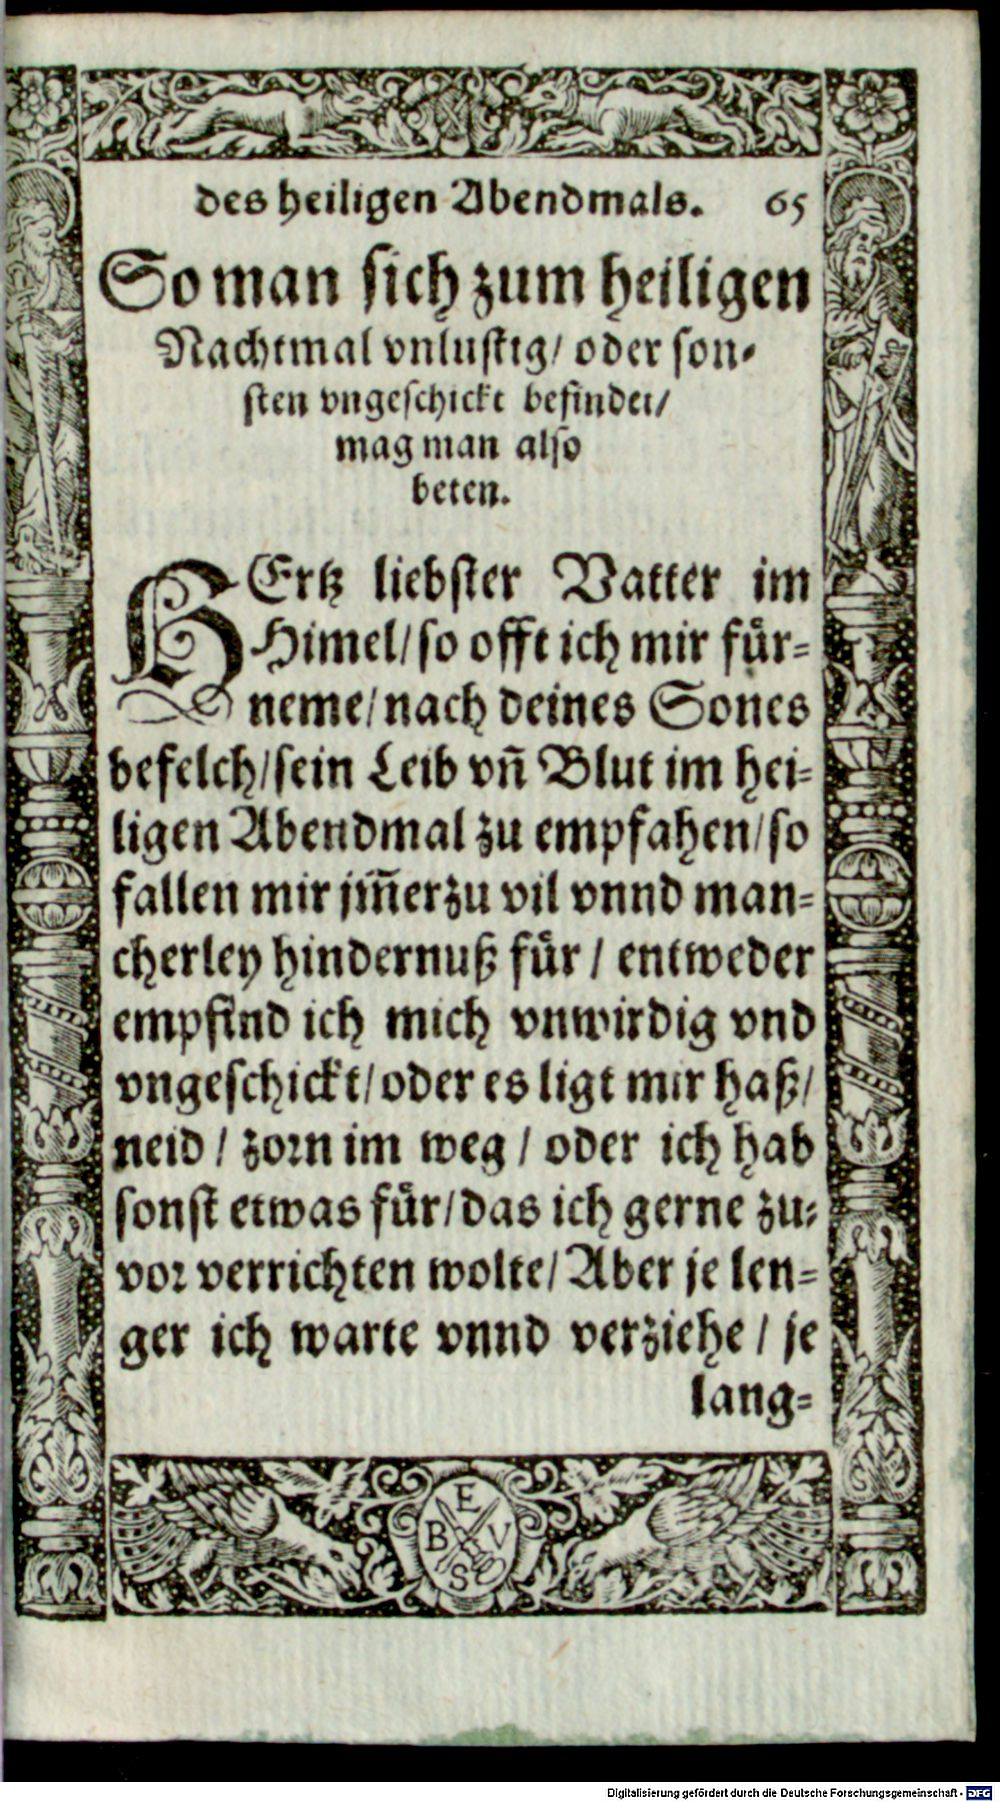 des heiligen Abendmals. 65
So man sich zum heiligen
Nachtmal vnlustig/ oder son-
sten vngeschickt befindet/
mag man also
beten.
HErtz liebster Vatter im
Himel/ so offt ich mir fuͤr-
neme/ nach deines Sones
befelch/ sein Leib vñ Blut im hei-
ligen Abendmal zu empfahen/ so
fallen mir jm̃erzu vil vnnd man-
cherley hindernuß fuͤr / entweder
empfind ich mich vnwirdig vnd
vngeschickt/ oder es ligt mir haß/
neid / zorn im weg / oder ich hab
sonst etwas fuͤr/ das ich gerne zu-
vor verrichten wolte/ Aber je len-
ger ich warte vnnd verziehe / je
lang-
E
B V
S
Digitalisierung gefördert durch die Deutsche Forschungsgemeinschaft - DFG